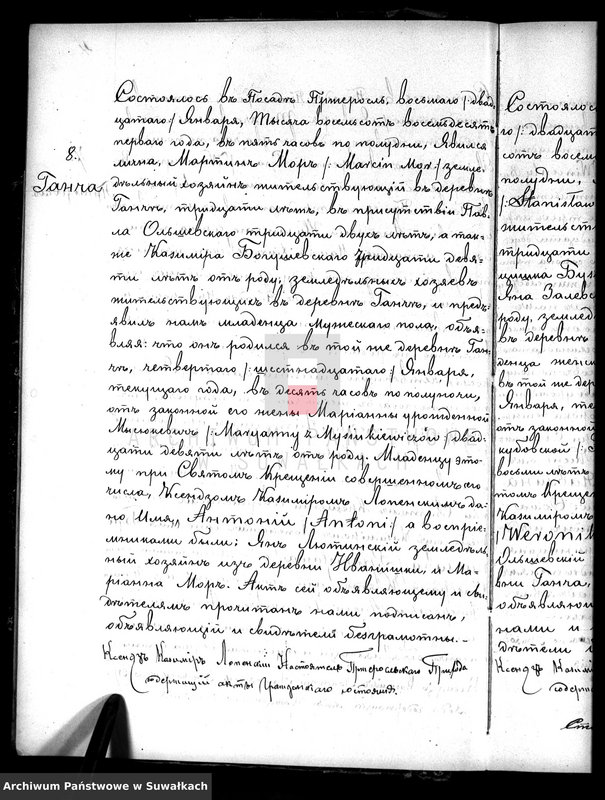 8.
Ганча
Состоялось въ Посадѣ Пржеросль, восьмаго /: двад-
цатаго :/ Января, Тысяча восемьсотъ восемьдесятъ
перваго года, въ пять часовъ по полудни, Явился
лично, Мартинъ Моръ /: Marcin Mor :/ земле-
дѣльный хозяинъ жительствующій въ деревнѣ
Ганчѣ, тридцати лѣтъ, въ присутствіи Пав-
ла Ольшевскаго тридцати двухъ лѣтъ, а так-
же Казиміра тридцати девя-
ти лѣтъ отъ роду, земледѣльныхъ хозяевъ
жительствующихъ въ деревнѣ Ганчѣ, и предъ-
явилъ намъ младенца Мужескаго пола, объя-
вляя: что онъ родился въ той же деревнѣ Ган-
чѣ, четвертаго /: шестнадцатаго :/ Января,
текущаго года, въ десять часовъ по полуночи,
отъ законной его жены Маріанны урожденной
Мысюкевичъ /: Maryanny z Mysiukiewiczów :/ двад-
цати девяти лѣтъ отъ роду. Младенцу это-
му при Святомъ Крещеніи совершенномъ сего
числа, Ксендзомъ Казиміромъ Лопенскимъ да-
но Имя, Антоній /Antoni/ а воспріе-
мниками были: Янъ Лютинскій земледѣль-
ный хозяинъ изъ деревни Иванишки, и Ма-
ріанна Моръ. Актъ сей объявляющему и сви-
дѣтелямъ прочитанъ нами подписанъ,
объявляющій и свидѣтели безграмотны.
Ксендзъ Казиміръ Лопенскій Настоятель Пржеросльскаго Прихода
содержащій акты Гражданскаго состоянія
Состоялось
го /: двадцат
сотъ восем
полудни,
/: Stanisław
жительств
тридцати
Яна Залев
роду, землед
въ деревнѣ
денца женс
въ той же дер
Января, те
отъ законно
кубовской /:
восьми лѣтъ
томъ Креще
Казиміромъ
/Weronik
Ольшевскій
вни Ганча,
объявляющ
нами и
дѣтели
Ксендзъ Казим
содерж
Archiwum Państwowe w Suwałkach